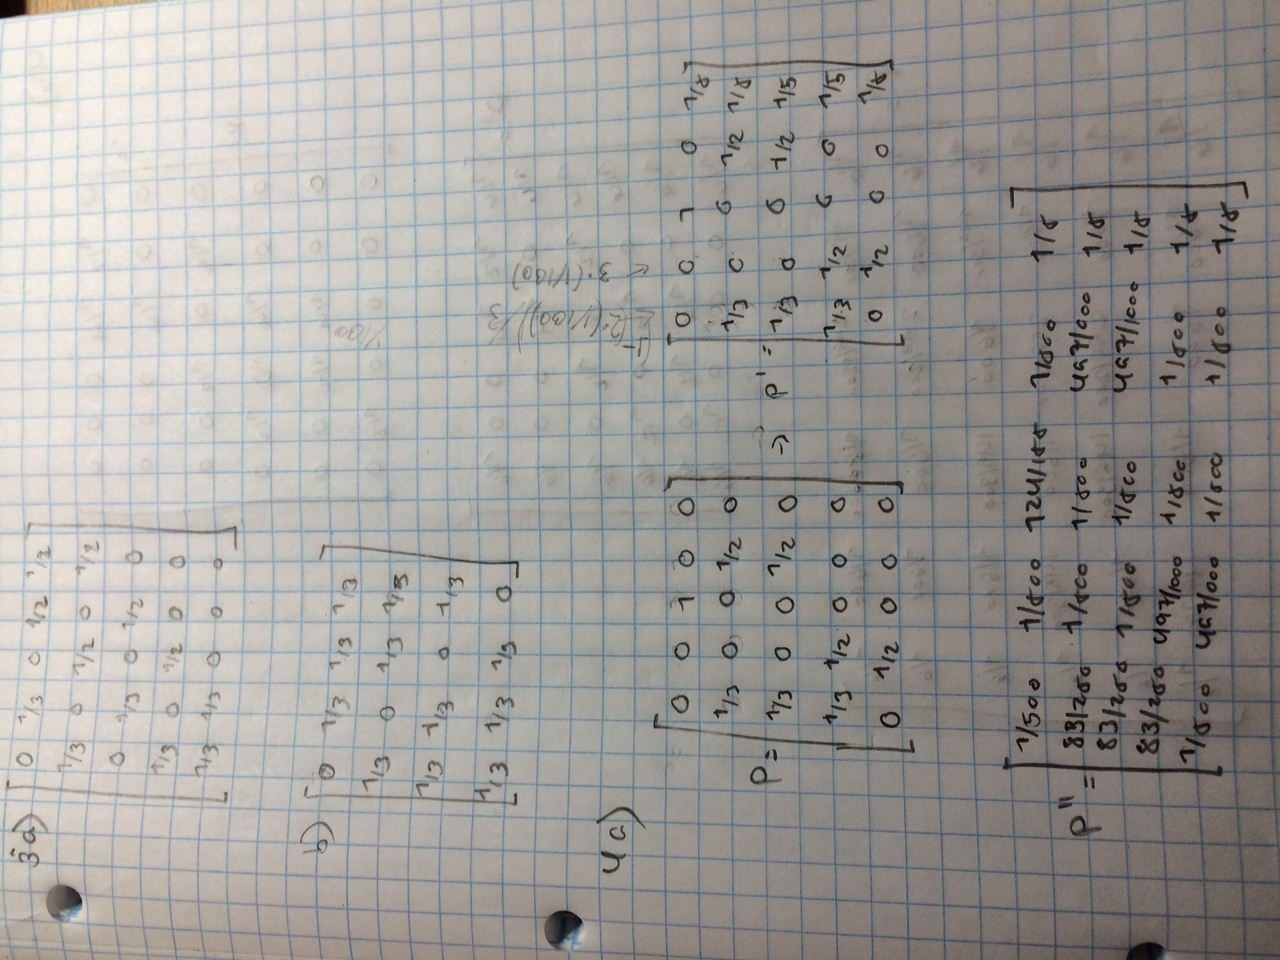 3a)
0 1/3 0 1/2 1/2
1/3 0 1/2 0 1/2
0 1/3 0 1/2 0
1/3 0 1/2 0 0
1/3 1/3 0 0 0
b)
0 1/3 1/3 1/3
1/3 0 1/3 1/3
1/3 1/3 0 1/3
1/3 1/3 1/3 0
4a)
P =
0 0 1 0 0
1/3 0 0 1/2 0
1/3 0 0 1/2 0
1/3 1/2 0 0 0
0 1/2 0 0 0
→ P' =
0 0 1 0 1/5
1/3 0 0 1/2 1/5
1/3 0 0 1/2 1/5
1/3 1/2 0 0 1/5
0 1/2 0 0 1/5
1/100
← 3·(1/100)
P'' =
1/500 1/500 124/125 1/500 1/5
83/250 1/500 1/500 497/1000 1/5
83/250 1/500 1/500 497/1000 1/5
83/250 497/1000 1/500 1/500 1/5
1/500 497/1000 1/500 1/500 1/5